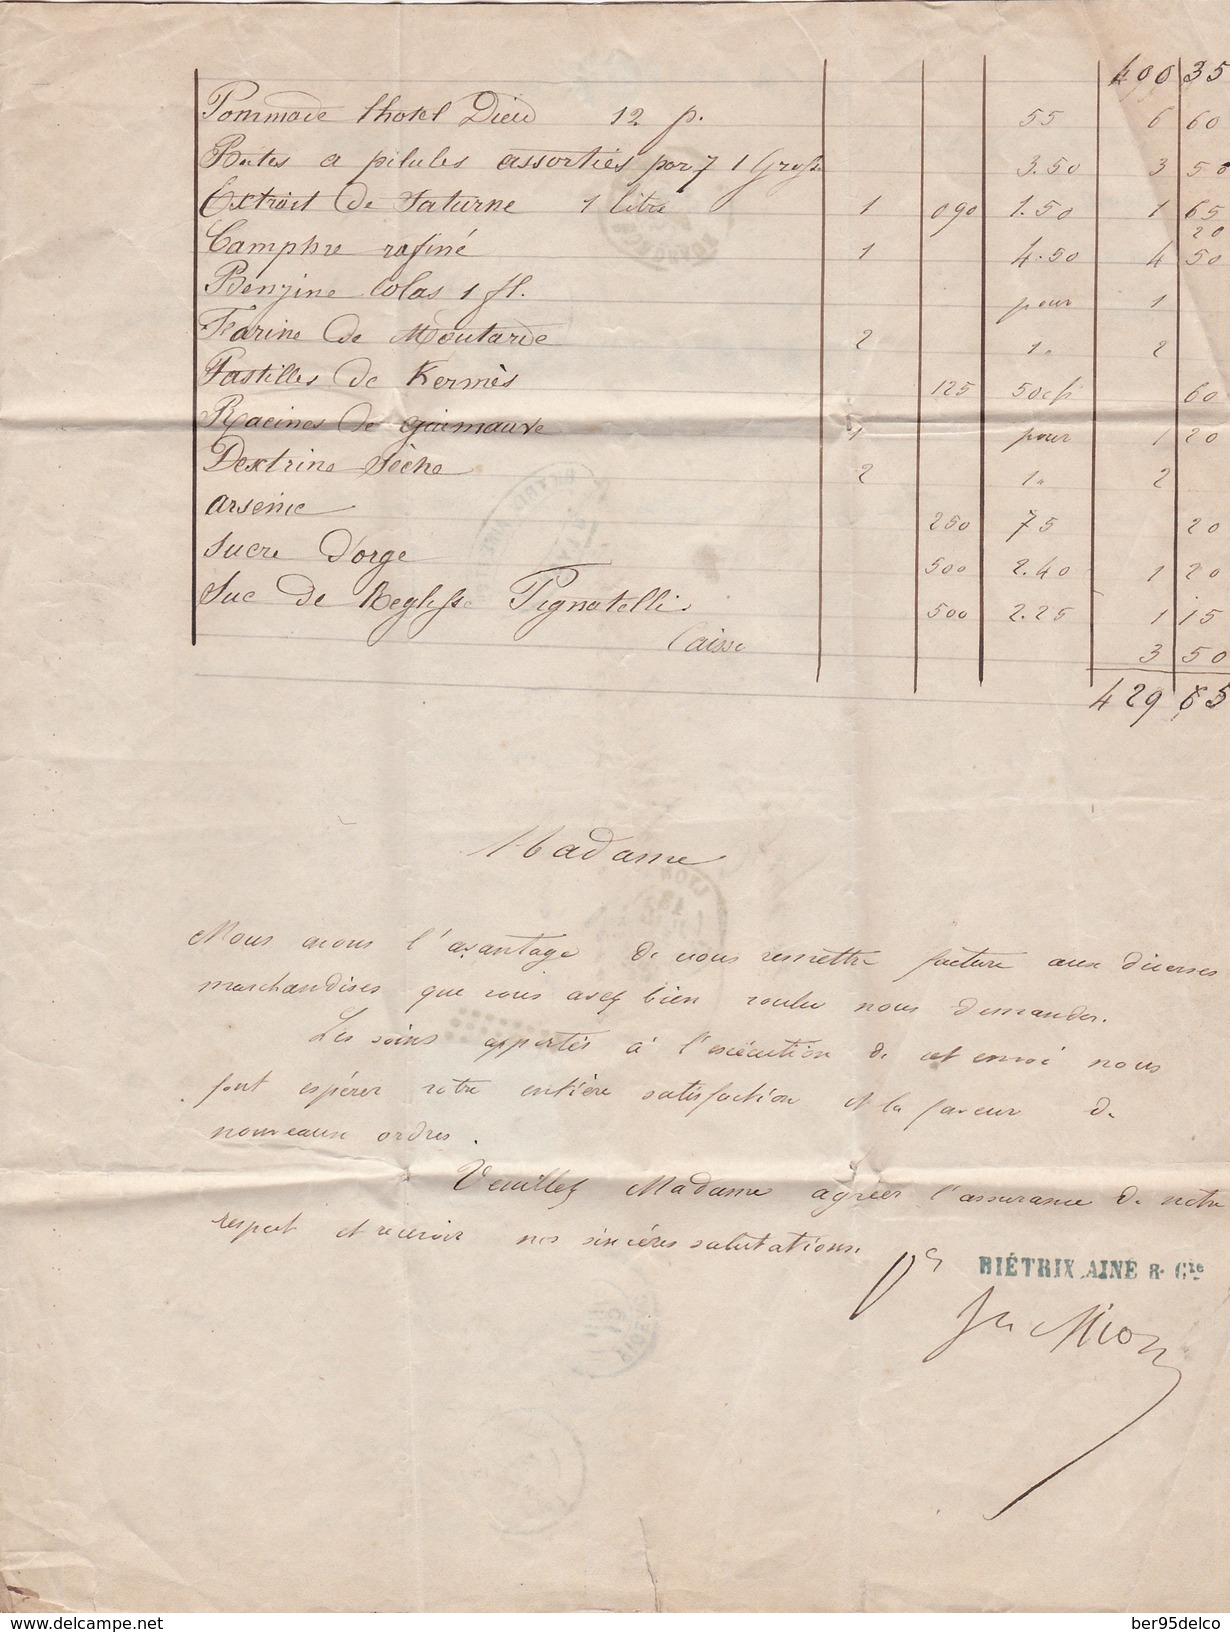 400 35
Pommade l'hotel Dieu 12 p. 55 6 60
Boites a pilules assorties par 7 1 Grosse 3.50 3 50
Extrait de Saturne 1 litre 1 090 1.50 1 65
20
Camphre rafiné 1 4.50 4 50
Benzine Colas 1 fl. pour 1
Farine de Moutarde 2 1" 2
Pastilles de Kermès 125 60
Racines de guimauve 1 pour 1 20
Dextrine Sèche 2 1" 2
arsenic 250 75 20
Sucre D'orge 500 2.40 1 20
Suc de Reglisse Pignatelli 500 2.25 1 15
Caisse 3 50
429 65
Madame
Nous avons l'avantage de vous remettre facture aux diverses
marchandises que vous avez bien voulu nous demander.
Les soins apportés à l'exécution de cet envoi nous
font espérer votre entière satisfaction et la faveur de
nouveaux ordres.
Veuillez Madame agréer l'assurance de notre
respect et recevoir nos sincères salutations.
BIÉTRIX AINÉ & Cie
delcampe.net
ber95delco